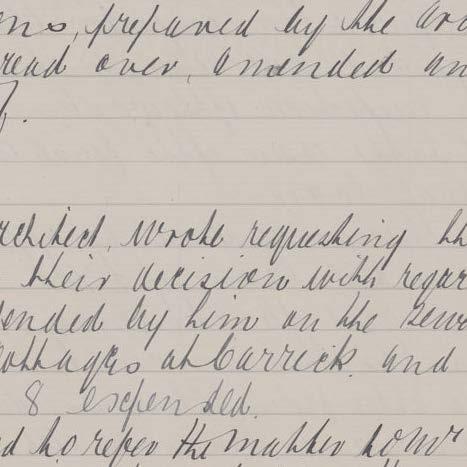 ens, prepared by the arc
read over, amended an
rchitect, wrote requesting th
their decision with regar
pended by him on the sew
Cottages at Carrick and
8 expended.
ed to refer the matter to Mr